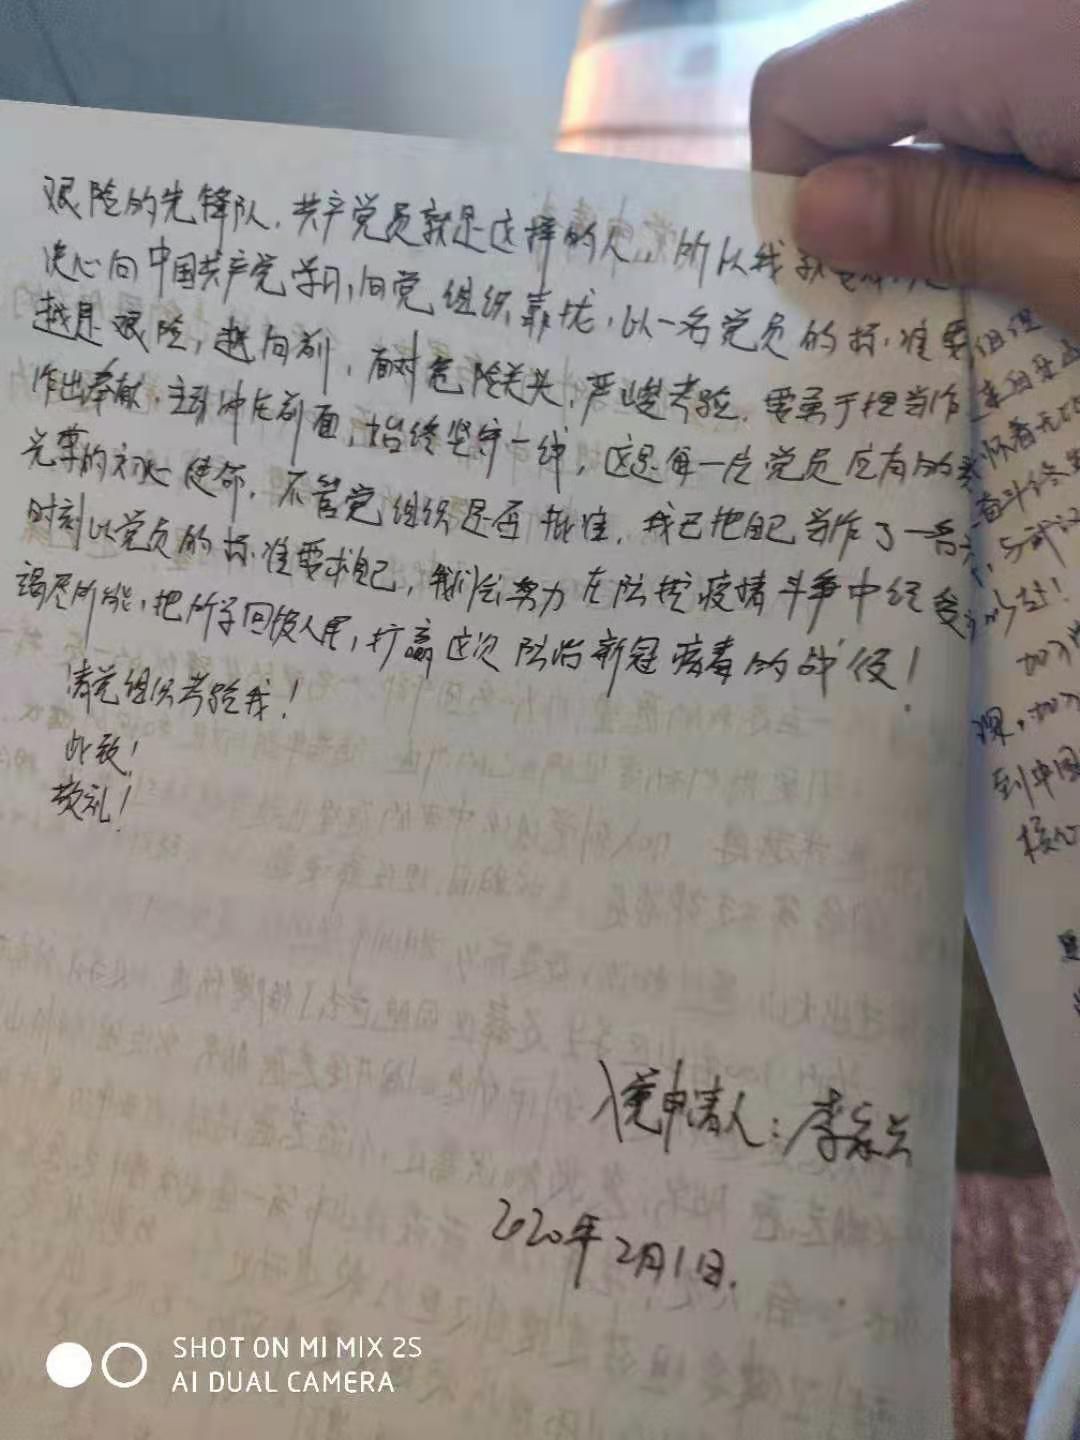 艰险的先锋队，共产党员就是这样的人，所以我
决心向中国共产党学习，向党组织靠拢，以一名党员的标准要
越是艰险，越向前，面对危险关头，严峻考验，要勇于担当作
作出奉献，主动冲在前面，始终坚守一线，这是每一位党员应有的
光荣的初心使命，不管党组织是否批准，我已把自己当作了一名
时刻以党员的标准要求自己，我们会努力在防控疫情斗争中经受
竭尽所能，把所学回馈人民，打赢这次防治新冠病毒的战役！
请党组织考验我！
此致！
敬礼！
入党申请人：李
2020年2月1日.
怀着无
奋斗终
加
加
到中国
核心
SHOT ON MI MIX 2S
AI DUAL CAMERA